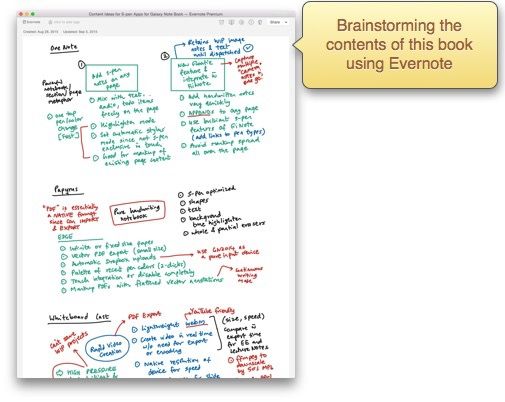 Content Ideas for S-pen Apps for Galaxy Note Book — Evernote Premium
Share
Created: Aug 28, 2015 Updated: Sep 5, 2015
One Note
→ Retains WIP image
notes & text
until dispatched
Powerful
notebook,
section, page
metaphor
①
Add S-pen
notes on any
page
②
New Floatie
feature &
integrate w
FiiNote
→ Capture
multiple
"camera,
notes" in
one go
one tap
pen/color
change
[Fast]
Mix with text,
audio, todo items
freely on the page
Highlighter mode
Set automatic stylus
mode since not S-pen
exclusive in touch
Good for markup of
existing page content
Add handwritten notes
very quickly
APPENDS to any page
Use brilliant S-pen
features of FiiNote
(add links to pen types)
Avoid markup spread
all over the page
Papyrus
"PDF" is essentially
a NATIVE format
since can IMPORT
& EXPORT
Pure handwriting
notebook
S-pen optimized
shapes
text
background
true highlighter
whole & partial erasers
EDGE
Infinite or fixed size pages
Vector PDF export (small size)
Automatic Dropbox uploads
Palette of recent pen colors (2-clicks)
Touch integration or disable completely
Markup PDFs with flattened vector annotations
→ use GN2014 as
a pure input device
→ Continuous
writing
mode
Whiteboard Cast
Can't save
WIP projects
PDF Export
Rapid Video
Creation
HIGH PRESSURE
YouTube friendly
Lightweight WebM
Create video in real time
w/o need for export
or encoding
Native resolution of
device for speed
(size, speed)
Compare w
export time
for EE and
Lecture Notes
ffmpeg to
downscale
Brainstorming the
contents of this book
using Evernote